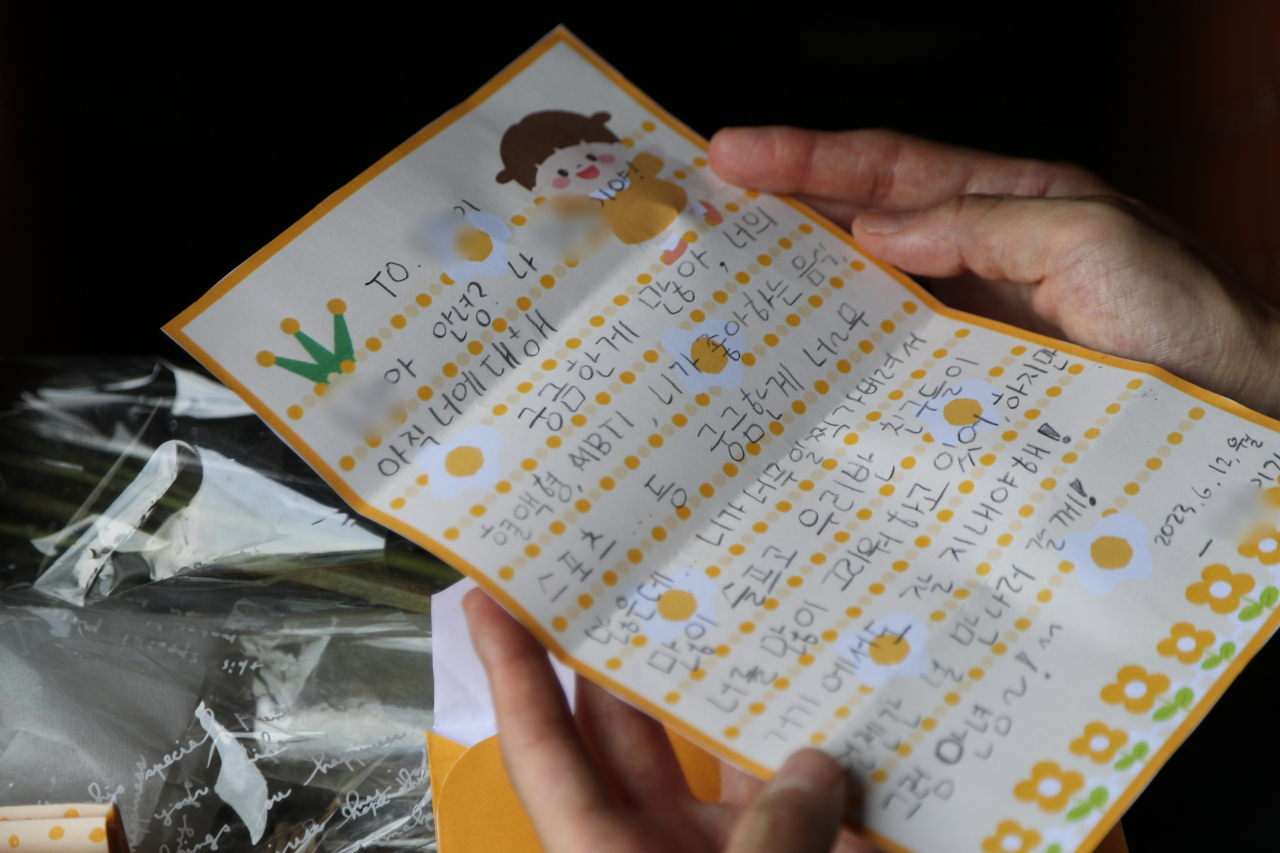 TO. 이
아 안녕? 나 이야!
아직 너에 대해
궁금한게 많아, 너의
혈액형, MBTI, 니가 좋아하는 음식,
스포츠 등 궁금한게 너무
많은데 니가 너무 일찍 가버려서
많이 슬프고 우리반 친구들이
너를 많이 그리워 하고 있어 하지만
거기에서도 잘 지내야해!
언젠간 널 만나러 갈게!
그럼 안녕~!
2023.6.12.월요일
special
your
happy